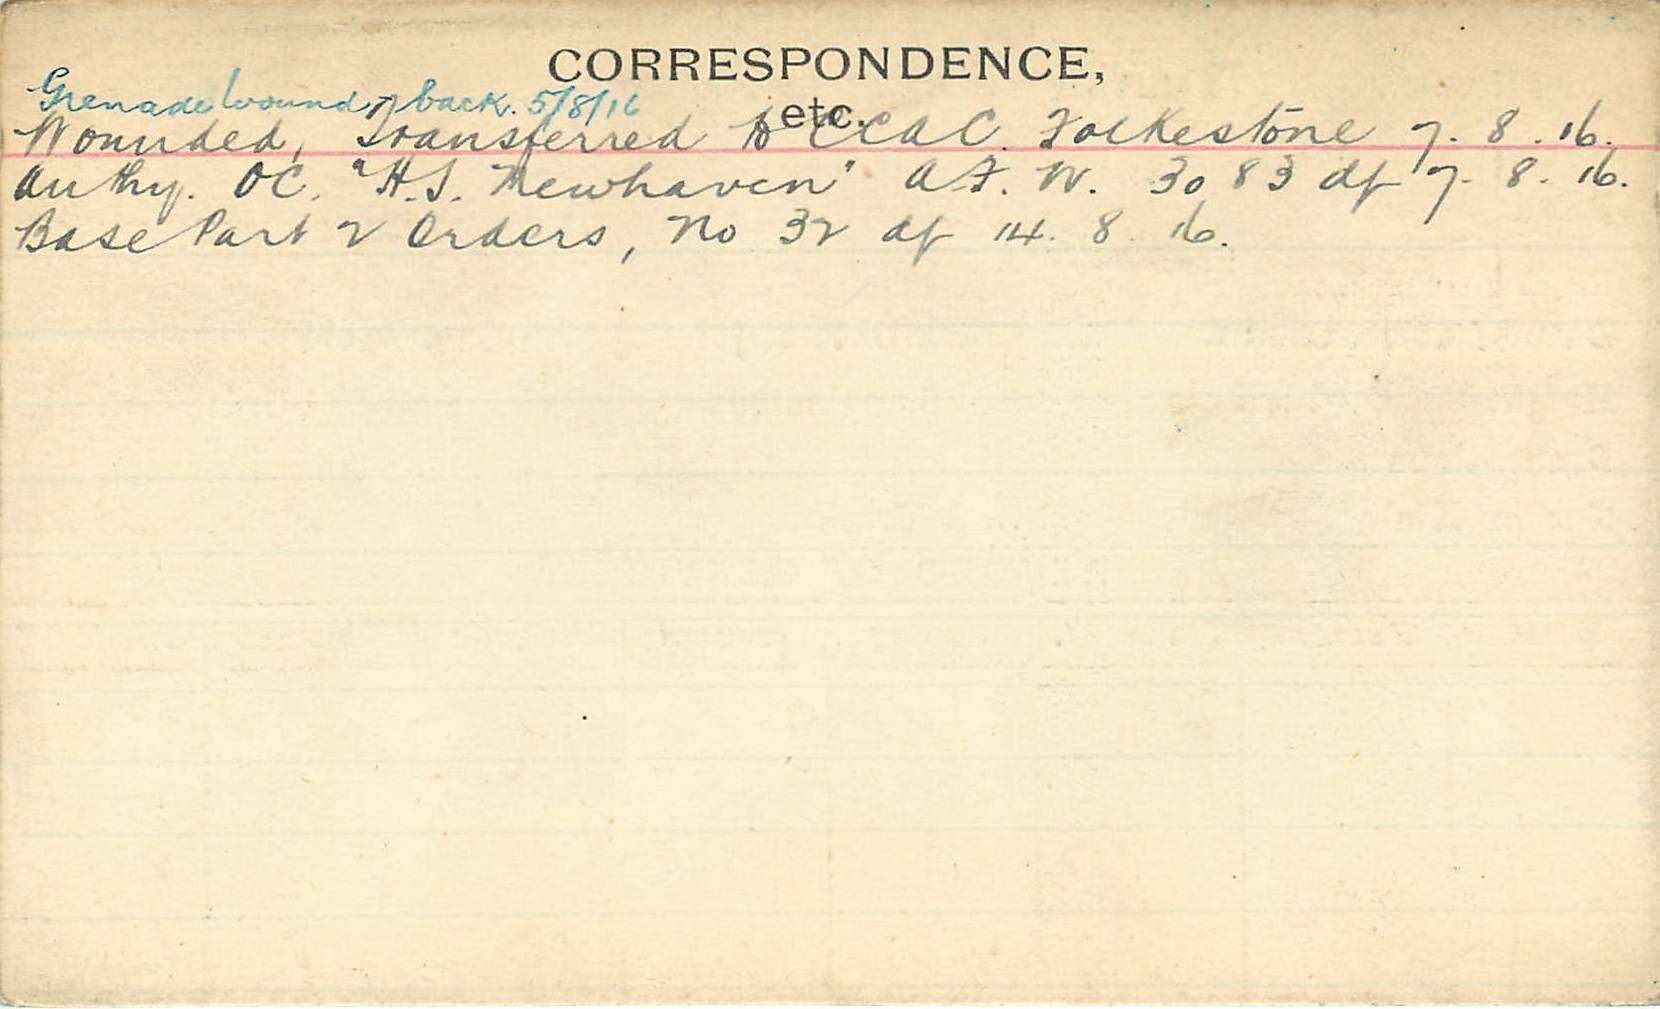 CORRESPONDENCE,
etc.
Grenade wound, back. 5/8/16
Wounded, Transferred to CCAC. Folkestone 7. 8. 16.
Authy. OC. "H.S. Newhaven" A.F. W. 3083 df 7. 8. 16.
Base Part 2 Orders, No 32 df 14. 8. 16.